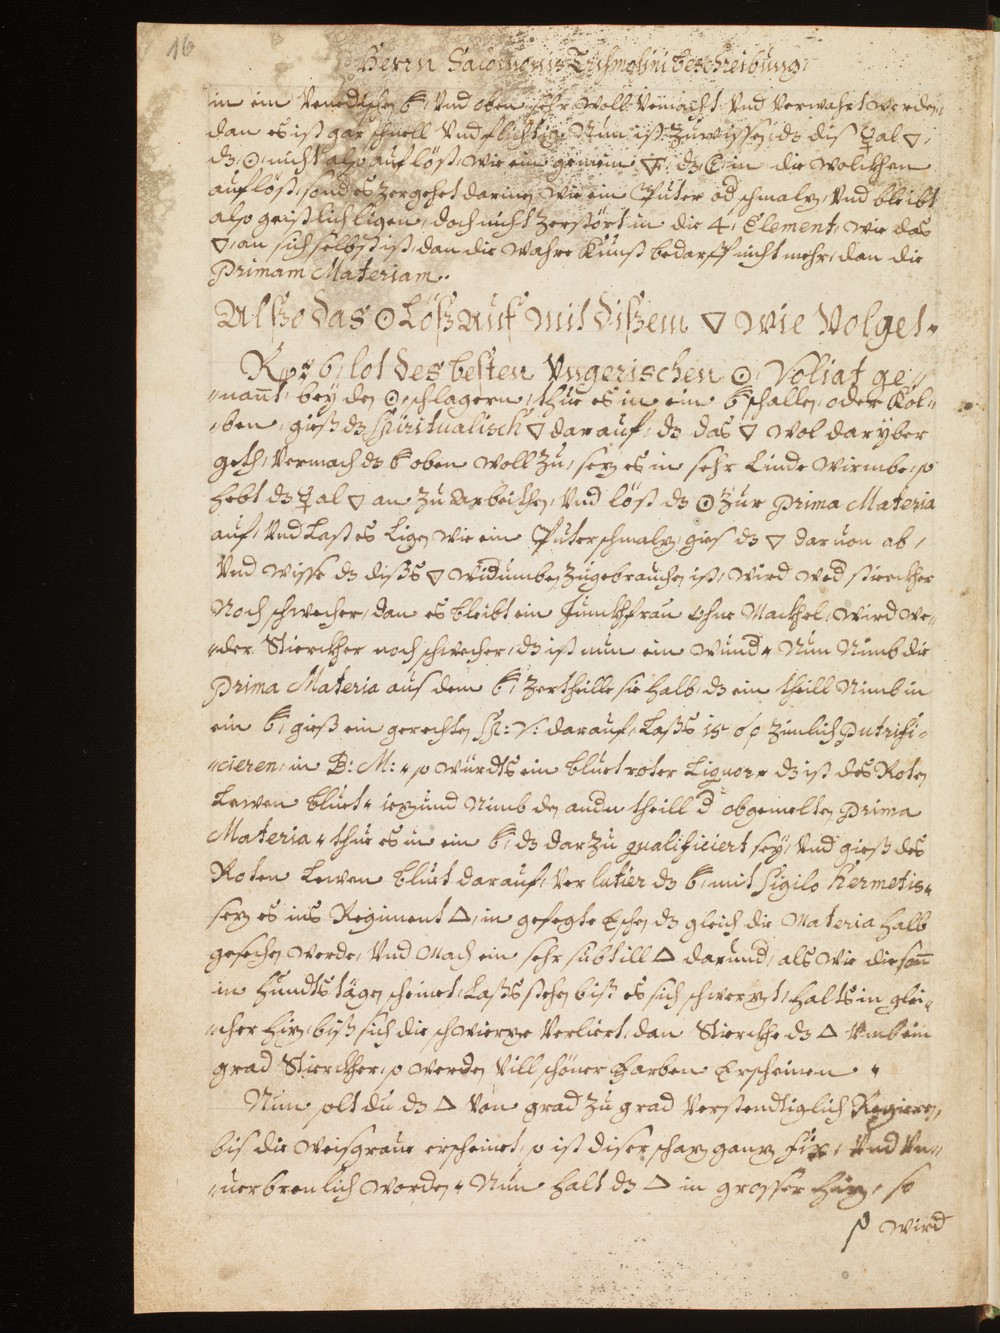 16
Herrn Salomonis Trismosini beschreibung,
in ein Venedisches 6, Vnd oben sehr woll Vermacht Vnd Verwahrt werden,
dan es ist gar schnell Vnd flichtig Nun ist zu wissen, dz dis ☿al ▽,
dz ☉ nicht also auf löst, wie ein gemein, dz in die wolckhen
auflöst, sond es zergehet darinen wie ein Puter od schmalz, Vnd bleibt
also geistlich ligen, doch nicht zerstört in die 4, Element, wie das
▽, an sich selbst ist, dan die wahre Kunst bedarff nicht mehr, dan die
Primam Materiam..
Alßo das ☉ Löß auf mit dißem ▽ wie Volget..
Rx 6, lot des besten Vngerischen ☉, Voliat ge-
-nannt, bey den ☉ schlagern, thue es in ein schallen, oder Kol-
-ben, gieß dz Spiritualisch ▽ darauf, dz das ▽ wol daryber
geth, Vermach dz 6 oben woll zu, sez es in sehr Linde wirmbe, so
hebt dz ☿al ▽ an zu Arbeithen, Vnd löst dz ☉ zur Prima Materia
auf, Vnd Last es Ligen wie ein Puterschmalz, gies dz ▽ daruon ab,
Vnd wisse dz dißs ▽ widumben zu gebrauchen ist, wird wed stierckher
Noch schwecher, dan es bleibt ein Junckhfrau ohne Mackhel, wird we-
-der Stierckher noch schwecher, dz ist nun ein wund Nun Nimb die
Prima Materia aus dem 6, zertheille sie halb, dz ein theill Nimb in
ein 6, gieß ein gerechten Sp: V: darauf, Laßs 15 zimlich putrifi-
-cieren, in B: M: so würdts ein bluet roter Liquor dz ist des Roten
Lewen bluet iezund Nimb den andn theill d obgemelten Prima
Materia thue es in ein 6, dz darzu qualificiert sey, Vnd gieß des
Roten Lewen bluet darauf, Verlutier dz 6, mit Sigilo Hermetis,
sez es ins Regiment △, in gesegte Eschen dz gleich die Materia halb
gesechen werde, Vnd Mach ein sehr subtill △ darund, als wie die sonn
in Hundtstägen scheinet, Laßs stehen biß es sich schwerzt, halts in glei-
-cher hiz, biß sich die schwierze Verliert, dan Stierckhe dz △ Vmb ein
grad Stierckher, so werden Vill schöner Farben Erscheinen
Nun solt du dz △ Von grad zu grad Verstendtiglich Regieren,
bis die weisgraue erscheinet, so ist diser schaz ganz fix, Vnd Vn-
-uerbrenlich worden Nun halt dz △ in grosser hiz, so
so wird